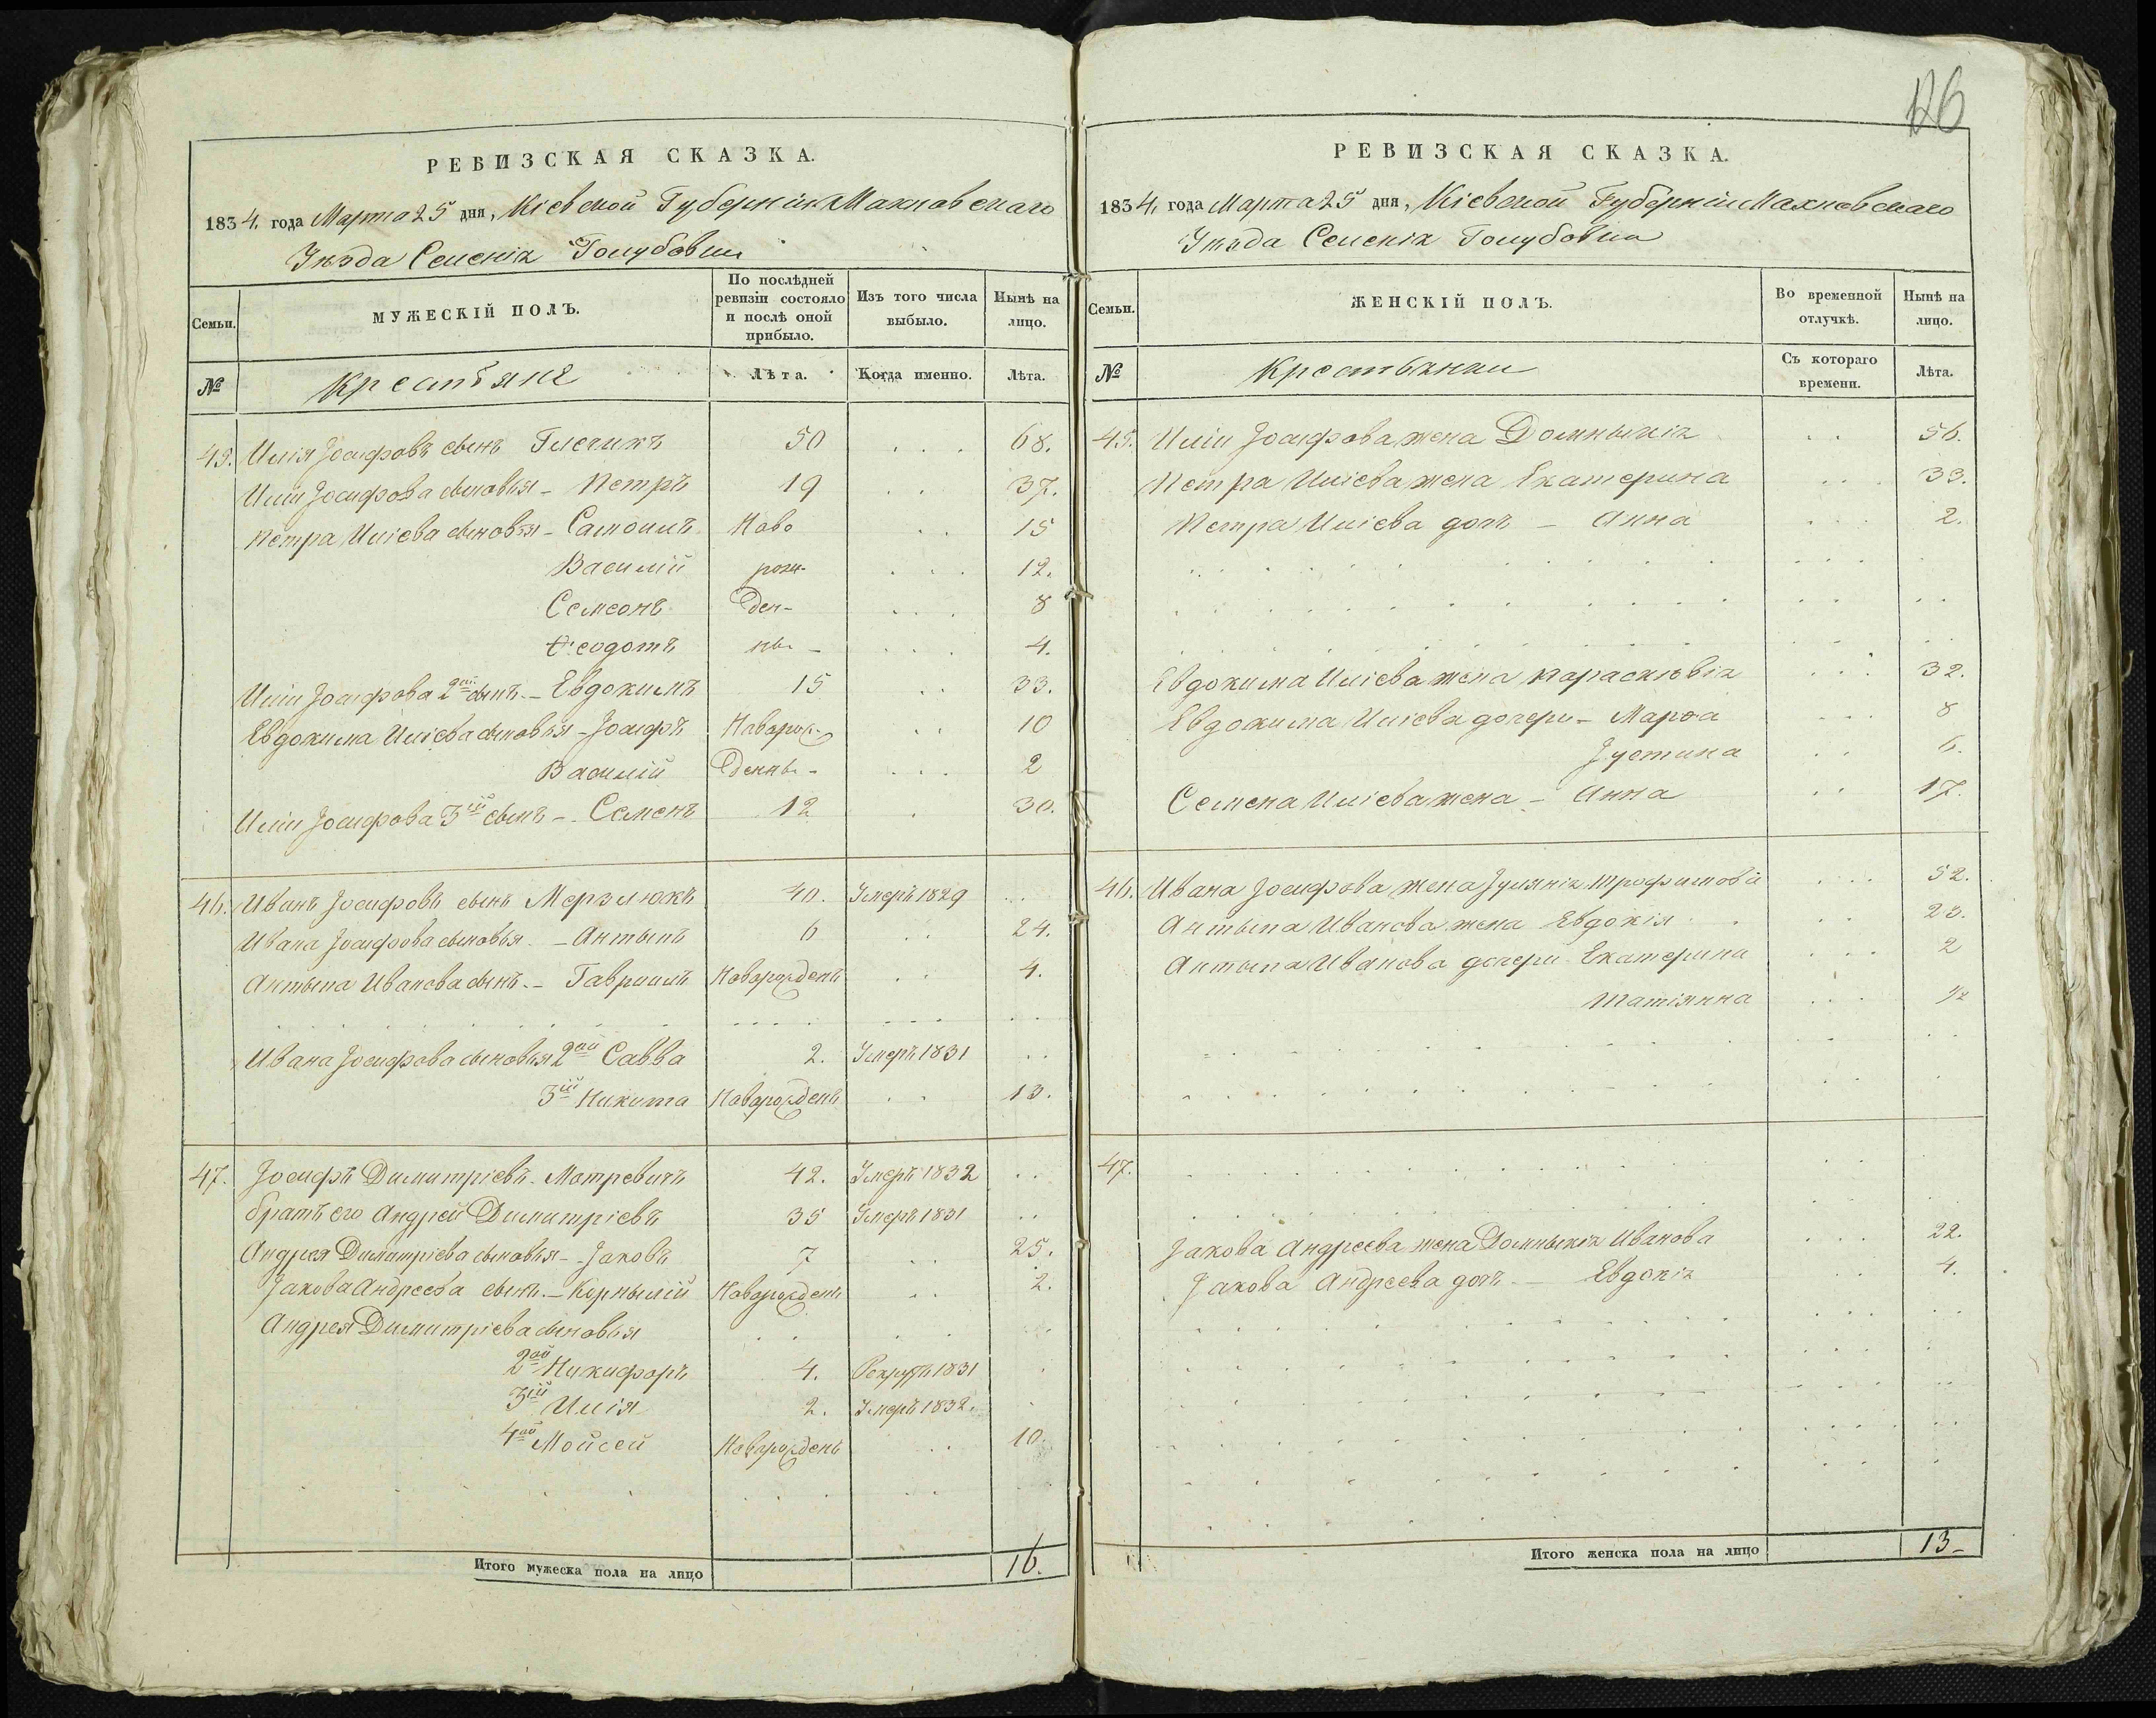 126
РЕВИЗСКАЯ СКАЗКА.
1834. года Марта 25 дня, Кіевской Губерніи Махновскаго
Уѣзда Селенія Голубовки
Семьи.
МУЖЕСКІЙ ПОЛЪ.
По послѣдней ревизіи состояло и послѣ оной прибыло.
Изъ того числа выбыло.
Нынѣ на лицо.
№ Крестьяне Лѣта. Когда именно. Лѣта.
45. Илія Іосифовъ сынъ Глечикъ 50 68.
Иліи Іосифова сыновья - Петръ 19 37.
Петра Иліева сыновья - Самоилъ Ново 15
Василій рож- 12.
Семеонъ ден- 8
Ѳеодотъ ны- 4.
Иліи Іосифова 2ой сынъ - Евдокимъ 15 33.
Евдокима Иліева сыновья - Іосифъ Неворож- 10
Василій денны- 2
Иліи Іосифова 3ій сынъ - Семенъ 12 30.
46. Иванъ Іосифовъ сынъ Мерзлюкъ 40. Умеръ 1829
Ивана Іосифова сыновья - Антыпъ 6 24.
Антыпа Иванова сынъ - Гавриилъ Новорожденъ 4.
Ивана Іосифова сыновья 2ой Савва 2. Умеръ 1831
3ій Никита Новорожденъ 13.
47. Іосифъ Димитріевъ Матревичъ 42. Умеръ 1832
братъ его Андрей Димитріевъ 35 Умеръ 1831
Андрея Димитріева сыновья - Іаковъ 7 25.
Іакова Андреева сынъ - Корнылій Новорожденъ 2.
Андрея Димитріева сыновья
2ой Никифоръ 4. Рекрутъ 1831
3ій Илія 2. Умеръ 1832.
4ой Мойсей Новорожденъ 10.
Итого мужеска пола на лицо 16.
РЕВИЗСКАЯ СКАЗКА.
1834. года Марта 25 дня, Кіевской Губерніи Махновскаго
Уѣзда Селенія Голубовки
Семьи.
ЖЕНСКІЙ ПОЛЪ.
Во временной отлучкѣ.
Нынѣ на лицо.
№ Крестьянки Съ котораго времени. Лѣта.
45. Иліи Іосифова жена Домныкія 56.
Петра Иліева жена Екатерина 33.
Петра Иліева дочь - Анна 2.
Евдокима Иліева жена Параскѣвія 32.
Евдокима Иліева дочери - Марѳа 8
Іустина 6.
Семена Иліева жена - Анна 17.
46. Ивана Іосифова жена Іулянія Трофимова 52.
Антыпа Иванова жена Евдокія 23.
Антыпа Иванова дочери Екатерина 2
Татіянна 1/2
47.
Іакова Андреева жена Домныкія Иванова 22.
Іакова Андреева дочь - Евдокія 4.
Итого женска пола на лицо 13-